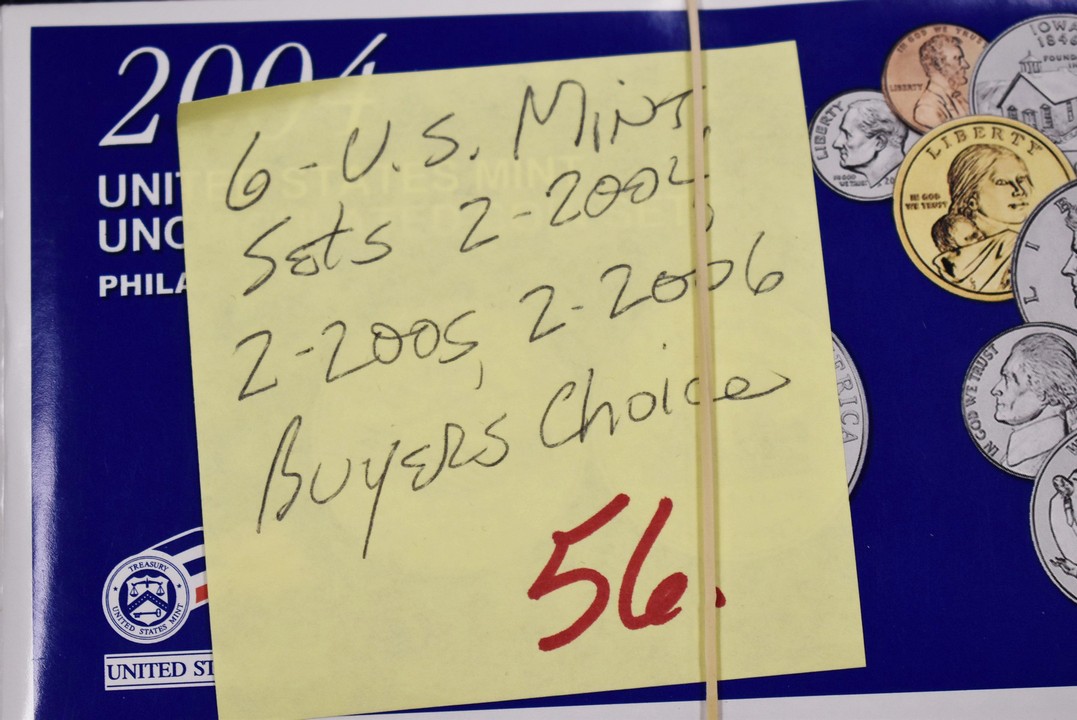 2004
UNI
UNC
PHILA
6-U.S. Mint.
Sets 2-2002,
2-2005, 2-2006
Buyers Choice
56.
TREASURY
UNITED STATES MINT
UNITED ST
IN GOD WE TRUST
LIBERTY
IOWA
1846
FOUND
LIBERTY
IN GOD
WE TRUST
20
LIBERTY
IN GOD
WE TRUST
LI
IN GOD WE TRUST
ERICA